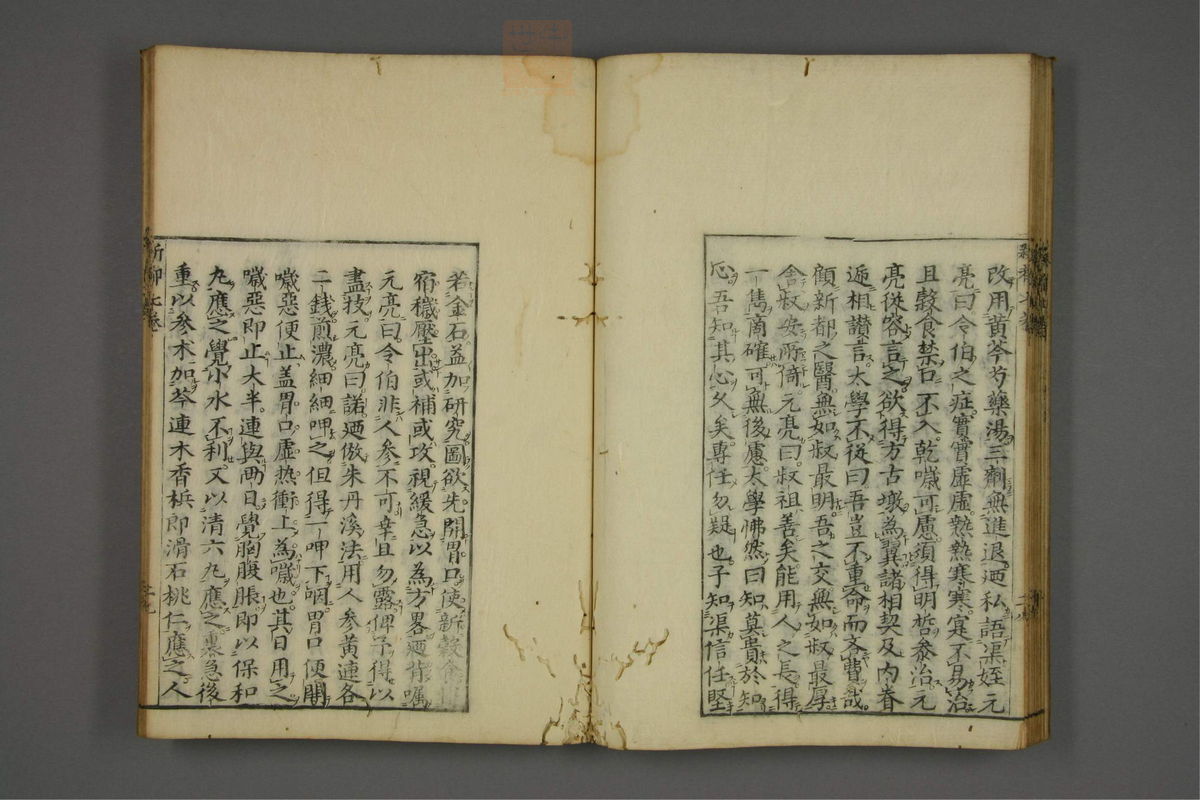 改用黄芩芍藥湯三劑無進退廼私語渠姪元
亮曰令伯之症實實虚虚熱熱寒寒寔不易治
且穀食禁口不入乾噦可慮須得明哲叅治元
亮從容言之欲得方古墩為翼諸相契及内眷
逓相讃言太學不從曰吾豈不重命而吝費哉
顧新都之醫無如叔最明吾之交無如叔最厚
舍叔安所倚元亮曰叔祖善矣能用人之長得
一雋商確可無後慮太學怫然曰知莫貴於知
心吾知其心久矣專任勿疑也子知渠信任堅
若金石益加研究圖欲先開胃口使新穀食
宿穢壓出或補或攻視緩急以為方畧廼背囑
元亮曰令伯非人参不可幸且勿露俾予得以
盡技元亮曰諾廼倣朱丹溪法用人参黄連各
二錢煎濃細細呷之但得一呷下咽胃口便開
噦惡便止盖胃口虚热衝上為噦也其日用之
噦惡即止大半連與兩日覺胸腹脹即以保和
丸應之覺小水不利又以清六丸應之裏急後
重以参术加芩連木香梹即滑石桃仁應之人